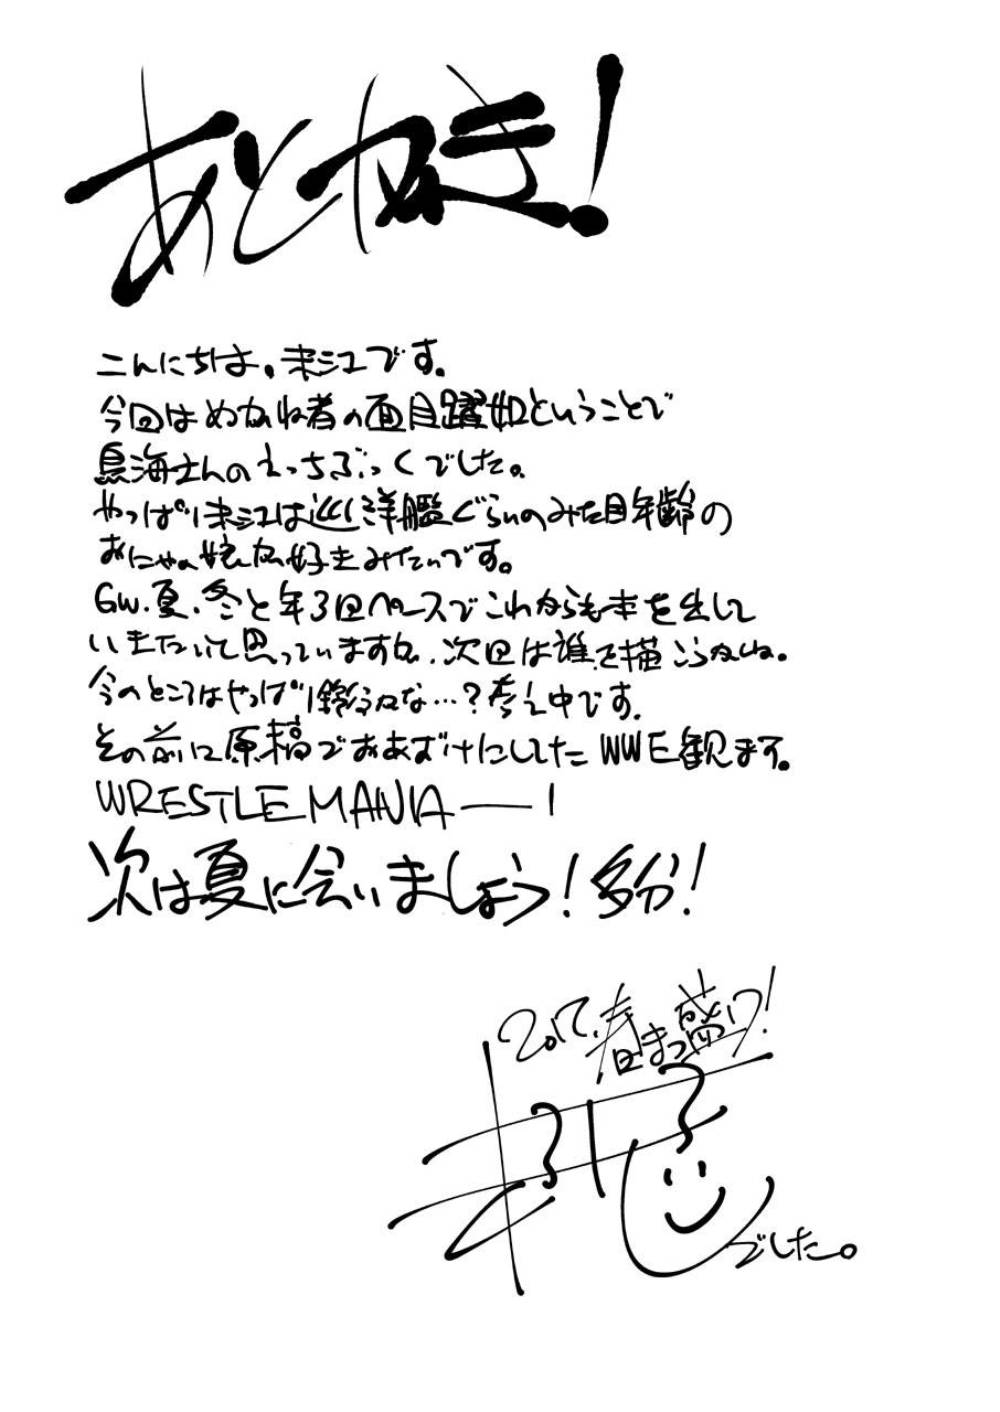 あとがき!
こんにちは。末江です。
今回はめがね者の面目躍如ということで
鳥海さんのえっちぶっくでした。
やっぱり末江は巡洋艦ぐらいのみた目年齢の
おにゃの娘が好きみたいです。
GW.夏.冬と年3回ペースでこれからも本を出して
いきたいって思っていますが、次回は誰を描こうかしね。
今のところはやっぱり鈴谷かな…?考え中です.
その前に原稿でおあずけにしてたWWE観ます。
WRESTLE MANIA——!
次は夏に会いましょう!多分!
2017.春まっ盛り!
でした。